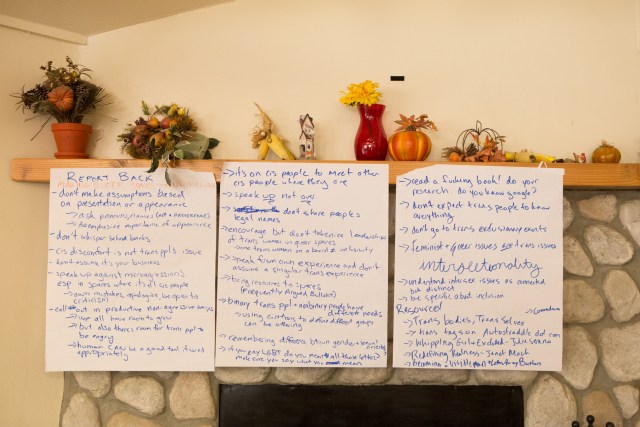 REPORT BACK
- don't make assumptions based
on presentation or appearance
→ ask pronouns/names (not a preference)
→ deemphasize importance of appearance
- don't whisper behind backs
- cis discomfort is not trans ppl's issue
- don't assume it's your business
- speak up against microaggressions
esp in spaces where it's all cis people
→ own mistakes, apologize, be open to
criticism)
- call out in productive non aggressive ways
→ we all have room to grow
→ but also there's room for trans ppl to
be angry
→ humor CAN be a good tool if used
appropriately
→ it's on cis people to meet other
cis people where they are
→ speak up not over
→ don't share people's
legal names
→ encourage but don't tokenize leadership
of trans women in queer spaces
- some trans women on a board ≠ inclusivity
→ speak from own experience and don't
assume a singular trans experience
→ bring resources to spaces
(frequently Argued Bullshit)
→ binary trans ppl + nonbinary people have
different needs
→ using cis/trans to define different groups
can be othering
→ remembering difference btwn gender + sexual
→ if you say LGBT do you mean all those letters?
make sure you say what you mean
→ read a fucking book! do your
research. do you know google?
→ don't expect trans people to know
everything
→ don't go to trans exclusionary events
→ feminist + queer issues are trans issues
intersectionality
→ understand intersex issues as connected
but distinct
→ be specific about inclusion
Resources!
→ Trans bodies, Trans Selves
→ trans tags on Autostraddle dot com
→ Whipping Girl + Excluded - Julia Serano
→ Redefining Realness - Janet Mock